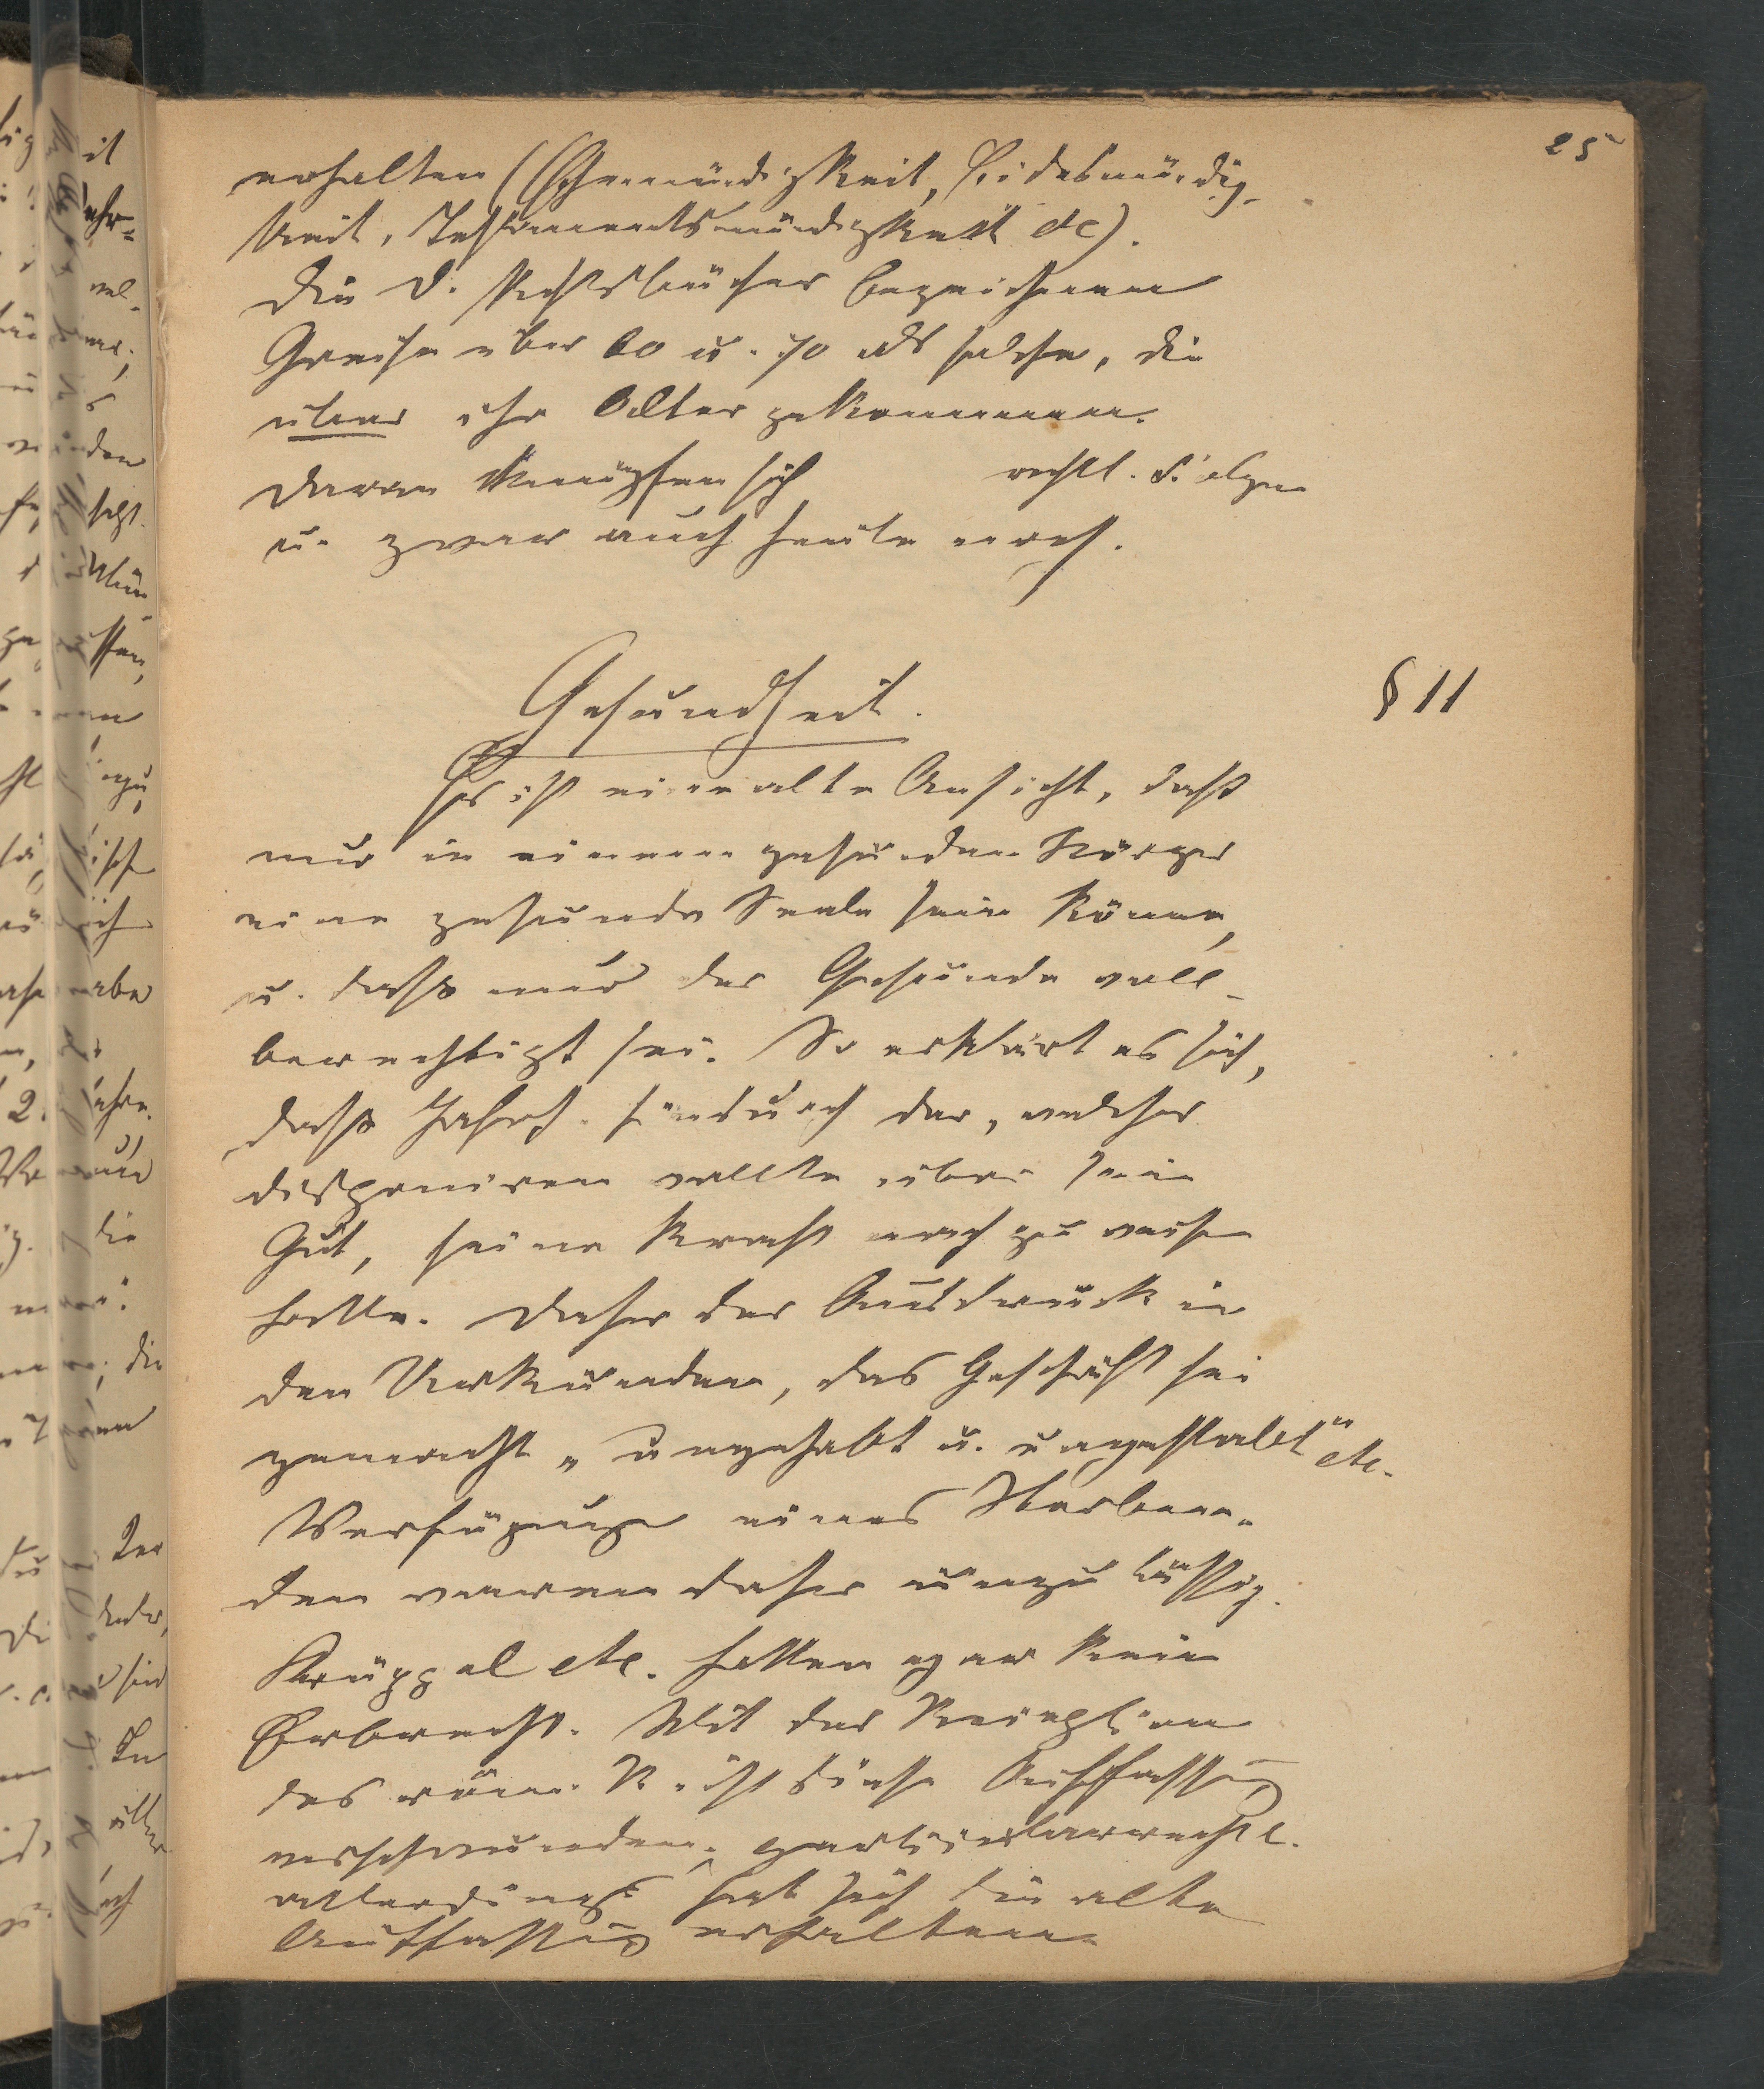 25
erhalten (Ehemündigkeit, Eidesmündig-
keit, Testamentsmündigkeit etc).
Die d. Rechtsbücher bezeichnen
Greise über 60 u. 70 als solche, die
über ihr Alter gekommen.
Daran knüpfen sich rechtl. Folgen
u. zwar auch heute noch.
Gesundheit.
§ 11
Es ist eine alte Ansicht, daß
nur in einem gesunden Körper
eine gesunde Seele sein könne,
u. daß nur der Gesunde voll-
berechtigt sei. So erklärt es sich,
daß Jahrh. hindurch der, welcher
disponiren wollte über sein
Gut, seine Kraft nach zu weisen
hatte. Daher der Ausdruck in
den Urkunden, das Geschäft sei
gemacht „ungehabt u. ungestabt“ etc.
Verfügungen eines Sterben-
den waren daher unzulässig.
Krüppel etc. hatten gar kein
Erbrecht. Mit der Reception
des röm. R. ist diese Auffassung
verschwunden, partikularrechtl.
allerdings hat sich die alte
Auffassung erhalten.